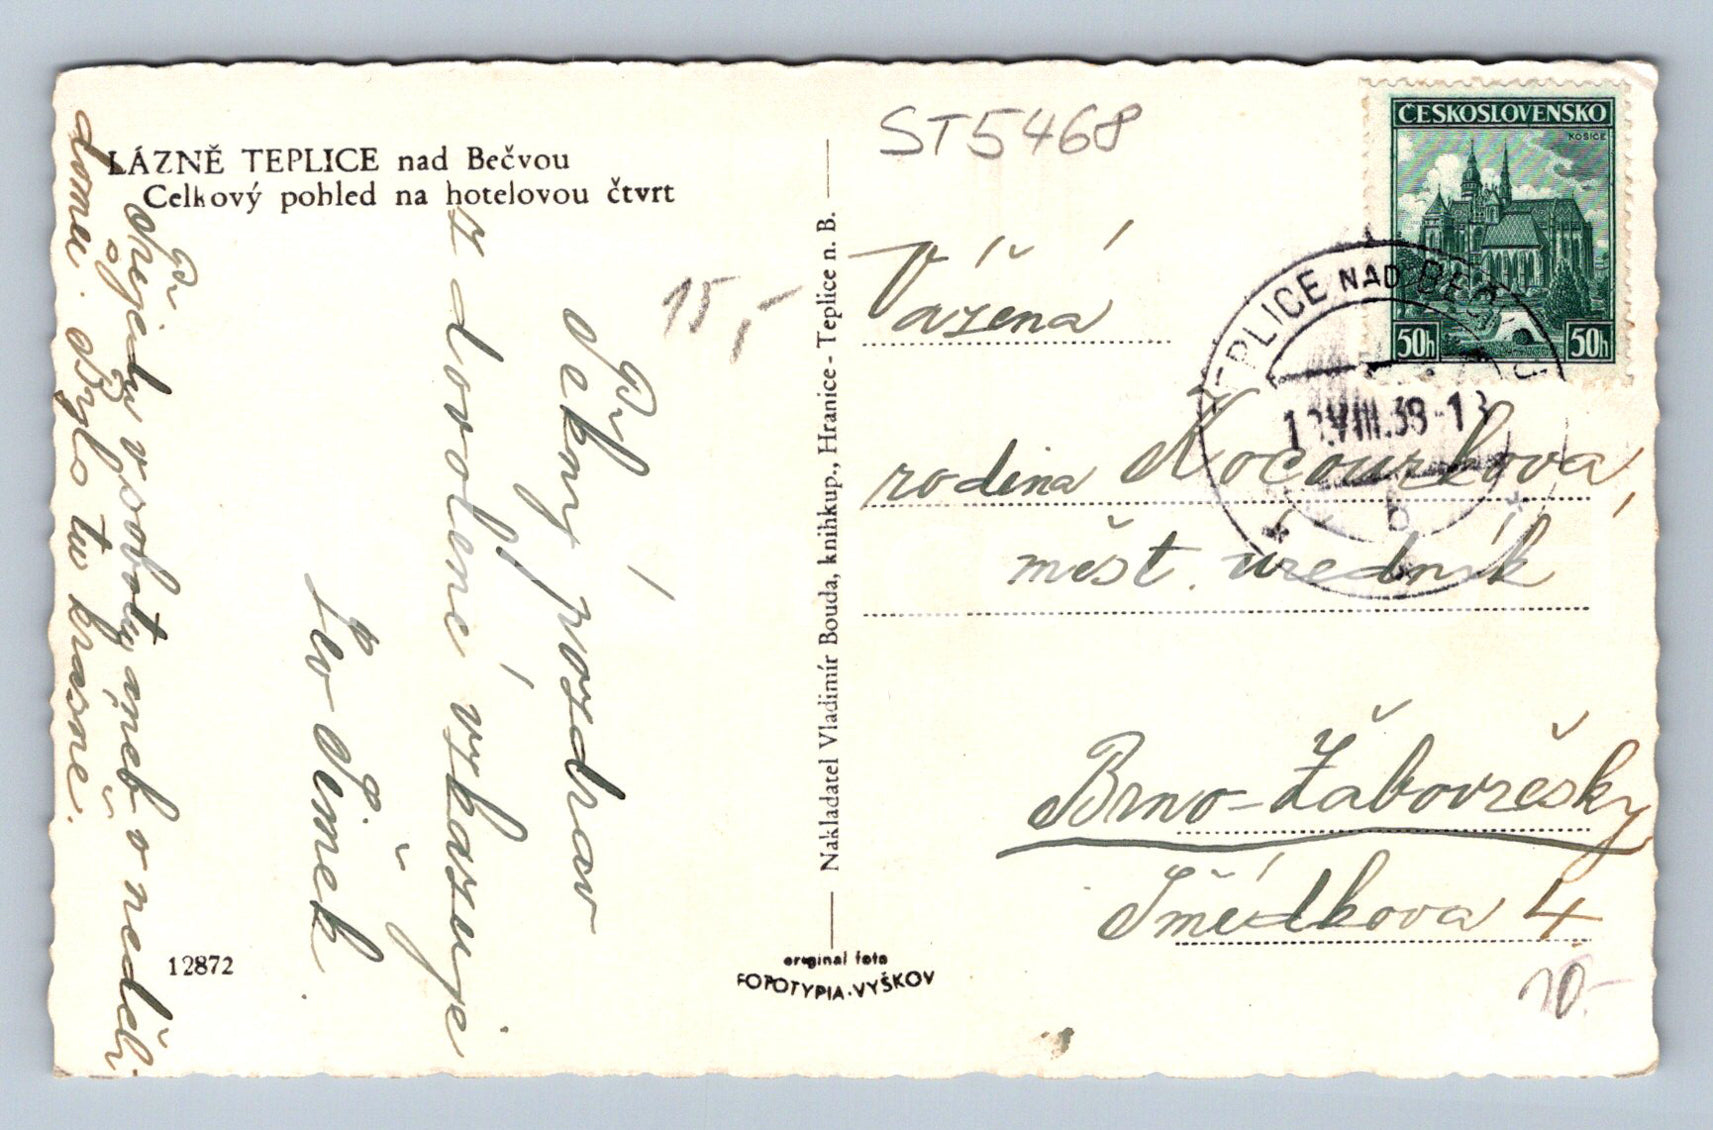 LÁZNĚ TEPLICE nad Bečvou
Celkový pohled na hotelovou čtvrt
Pěkný pozdrav
z dovolené vzkazuje
Iv Šimek
Přijedu v sobotu aneb o neděli
domů. Bylo tu krásně.
15,-
12872
Nakladatel Vladimír Bouda, knihkup., Hranice - Teplice n. B.
original foto
FOTOTYPIA-VYŠKOV
ST5468
ČESKOSLOVENSKO
KOŠICE
50h 50h
TEPLICE NAD BEČVOU
VIII.38-13
b
Vážená
rodina Kocourkova,
měst. úředník
Brno-Žabovřesky
Šmídkova 4.
10.-